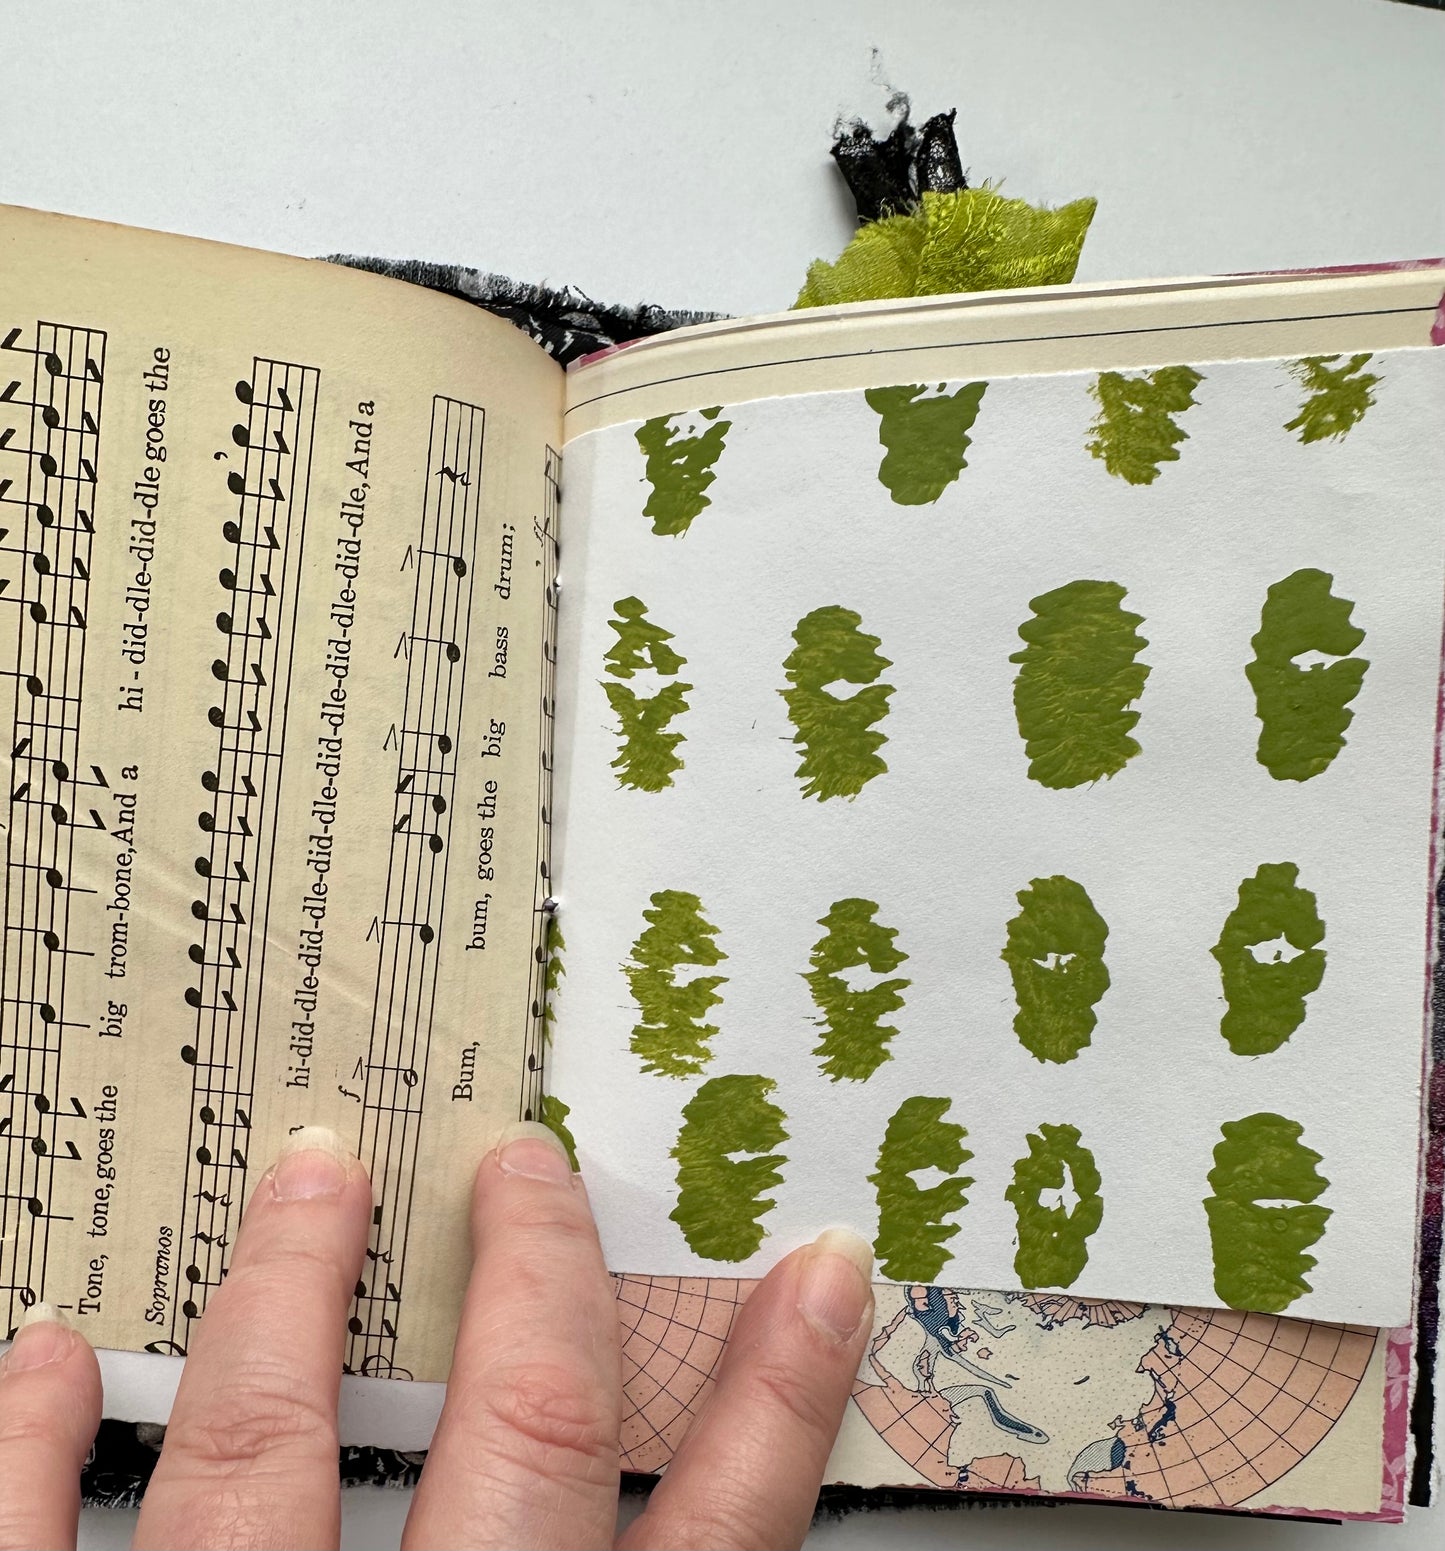 hi - did-dle-did-dle goes the
Tone, tone, goes the big trom-bone, And a
Sopranos
a hi-did-dle-did-dle-did-dle-did-dle-did-dle-did-dle-did-dle, And a
f
Bum, bum, goes the big bass drum;
ff